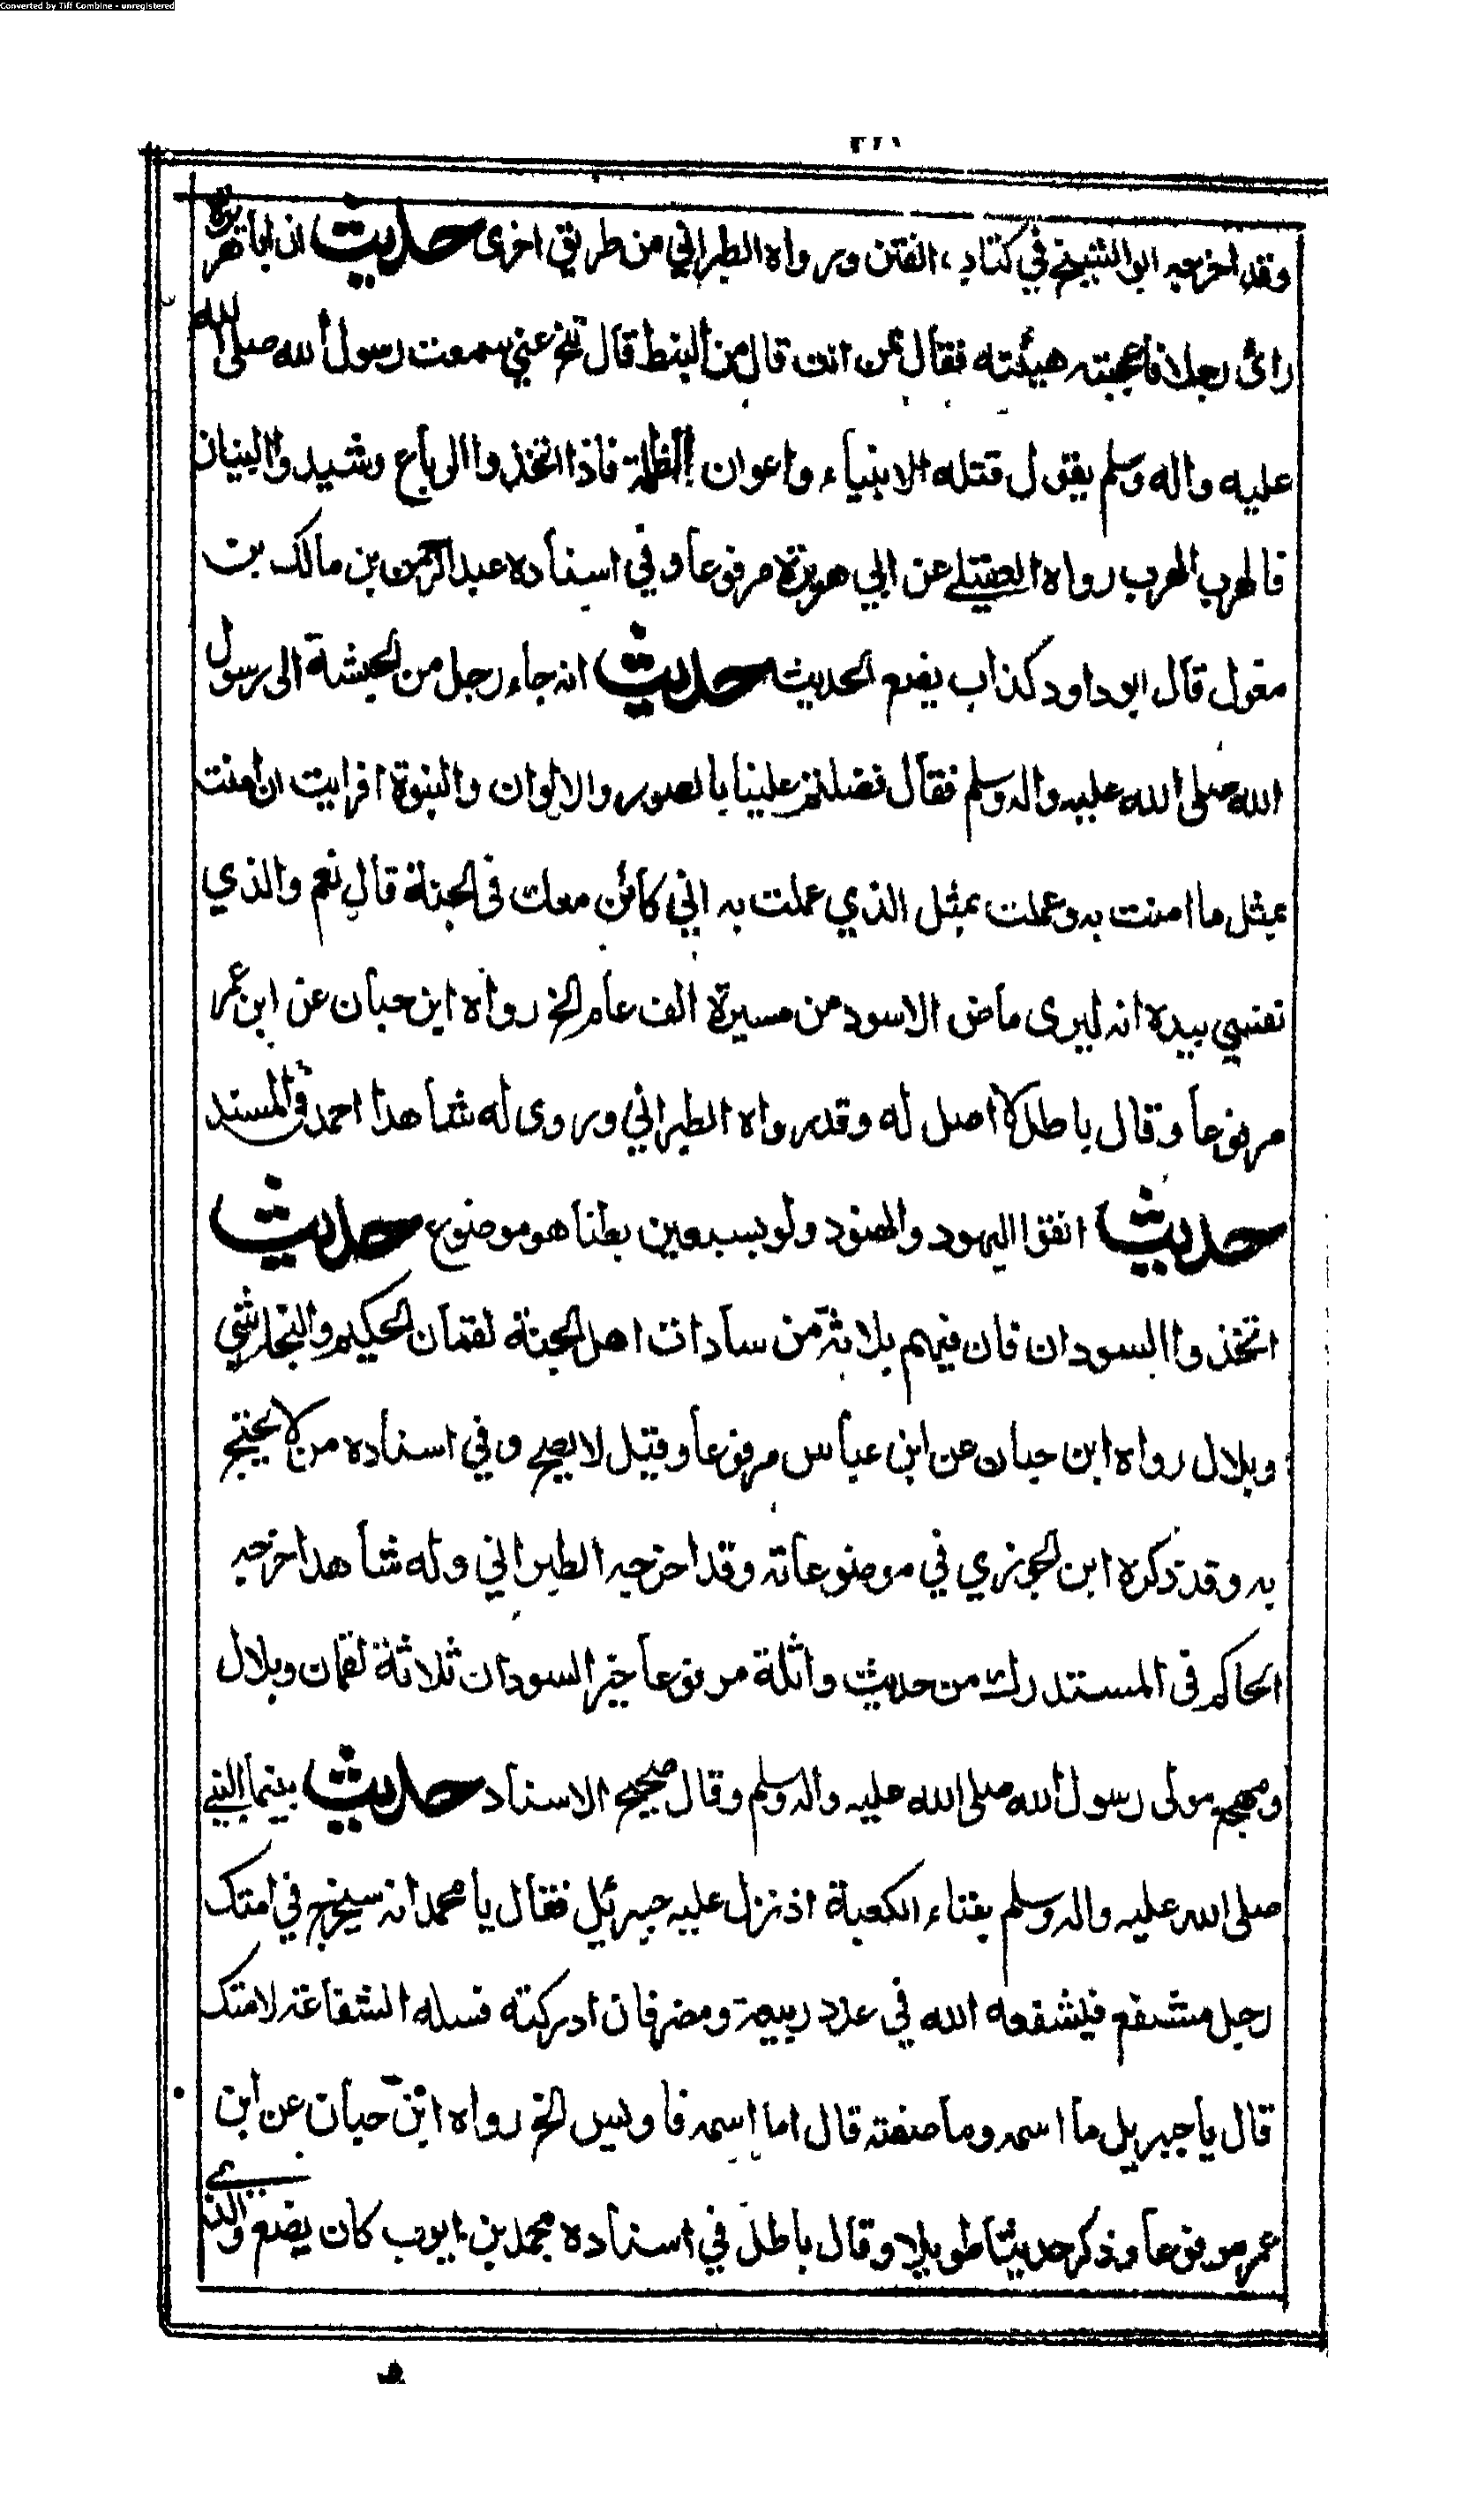 Converted by Tiff Combine - unregistered
وقد اخرجه ابو الشيخ في كتاب الفتن ورواه الطبراني من طريق اخرى حديث ان ابا هريرة
رائ رجلا فأعجبته هيئته فقال ممن انت قال من النبط قال تنح عني سمعت رسول الله صلى الله
عليه واله وسلم يقول قتله الانبياء واعوان الظلمة فاذا اتخذوا الرباع وشيدوا البنيان
فالهرب الهرب رواه العقيلي عن ابي هريرة مرفوعا وفي اسناده عبد الرحمن بن مالك بن
مغول قال ابو داود كذاب يضع الحديث حديث انه جاء رجل من الحبشة الى رسول
الله صلى الله عليه واله وسلم فقال فضلتم علينا بالصور والالوان والنبوة افرايت ان امنت
بمثل ما امنت به وعملت بمثل الذي عملت به اني كائن معك في الجنة قال نعم والذي
نفسي بيده انه ليرى بياض الاسود من مسيرة الف عام الخ رواه ابن حبان عن ابن عمر
مرفوعا وقال باطل لا اصل له وقد رواه الطبراني وروى له شاهدا احمد في المسند
حديث اتقوا اليهود والهنود ولو بسبعين بطنا هو موضوع حديث
اتخذوا السودان فان فيهم ثلاثة من سادات اهل الجنة لقمان الحكيم والنجاشي
وبلال رواه ابن حبان عن ابن عباس مرفوعا وقيل لا يصح وفي اسناده من لا يحتج
به وقد ذكره ابن الجوزي في موضوعاته وقد اخرجه الطبراني وله شاهدا خرجه
الحاكم في المستدرك من حديث واثلة مرفوعا خير السودان ثلاثة لقمان وبلال
ومهجع مولى رسول الله صلى الله عليه واله وسلم وقال صحيح الاسناد حديث بينما النبي
صلى الله عليه واله وسلم بفناء الكعبة اذ نزل عليه جبرئيل فقال يا محمد انه سيخرج في امتك
رجل مشفع فيشفعه الله في عدد ربيعة ومضر فان ادركته فسله الشفاعة لامتك
قال يا جبريل ما اسمه وما صفته قال اما اسمه فاويس الخ رواه ابن حبان عن ابن
عمر مرفوعا وذكر حديثا طويلا وقال باطل في اسناده محمد بن ايوب كان يضع والذي